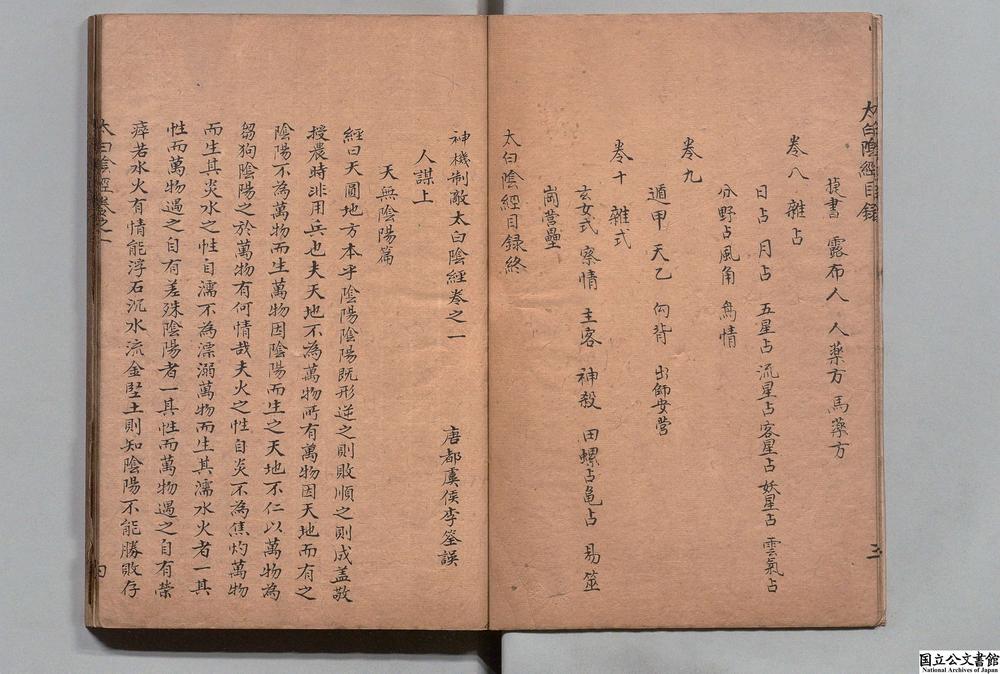 太白陰經目録
捷書 露布人 人藥方 馬藥方
卷八 雜占
日占 月占 五星占 流星占 客星占 妖星占 雲氣占
分野占 風角 鳥情
卷九
遁甲 天乙 出師安營
卷十 雜式
玄女式 察情 主客 神殺 田螺占 龜占 易筮
營壘
太白陰經目録終
三
神機制敵太白陰經卷之一
唐都虞侯李筌誤
人謀上
天無陰陽篇
經曰天圓地方本乎陰陽陰陽既形逆之則敗順之則成盖敬
授農時非用兵也夫天地不為萬物所有萬物因天地而有之
陰陽不為萬物而生萬物因陰陽而生之天地不仁以萬物為
芻狗陰陽之於萬物有何情哉夫火之性自炎不為焦灼萬物
而生其炎水之性自濡不為漂溺萬物而生其濡水火者一其
性而萬物遇之自有差殊陰陽者一其性而萬物遇之自有榮
瘁若水火有情能浮石沉水流金堅土則知陰陽不能勝敗存
太白陰經卷之一